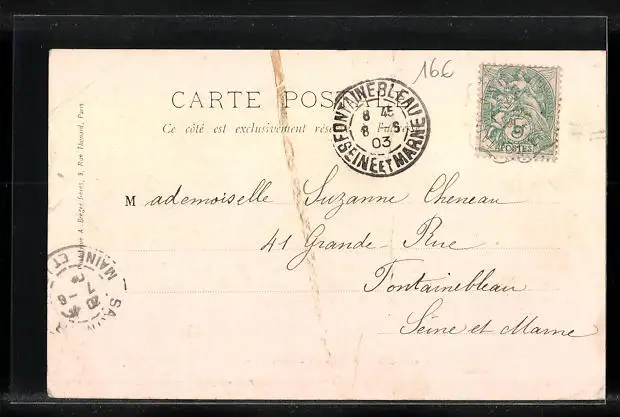 16€
CARTE POSTALE
Ce côté est exclusivement réservé à l'adresse
FONTAINEBLEAU
8 45
8 -6
03
SEINE ET MARNE
5
POSTES
Mademoiselle Suzanne Cheneau
41 Grande-Rue
Fontainebleau
Seine et Marne
A. Breger frères, 9, Rue Thénard, Paris
MAINE ET
7